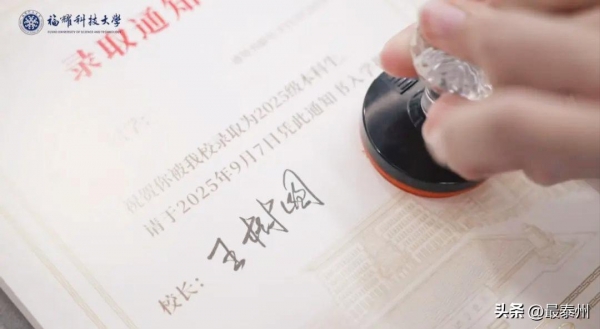 福耀科技大学
FUYAO UNIVERSITY OF SCIENCE AND TECHNOLOGY
录取通知
祝贺你被我校录取为2025级本科生,
请于2025年9月7日凭此通知书入学
校长:王树国
头条 @最泰州